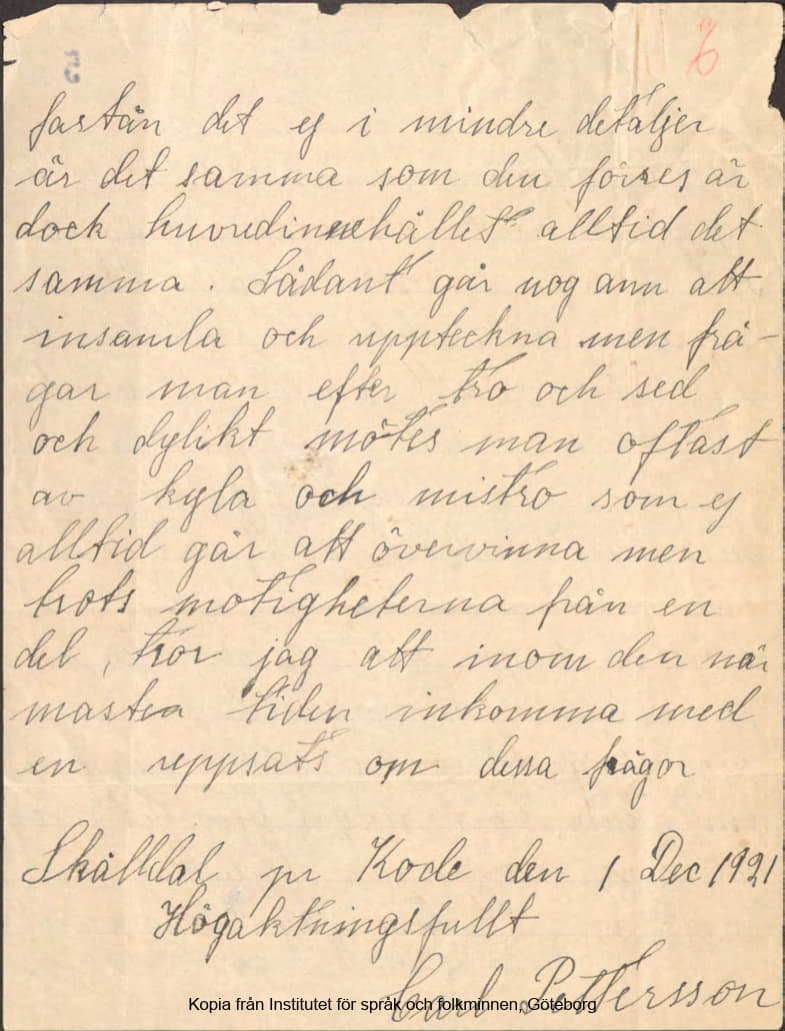 fastän det ej i mindre detaljer
är det samma som den förres är
dock huvudinnehållet alltid det
samma. Sådant går nog ann att
insamla och uppteckna men frå-
gar man efter tro och sed
och dylikt mötes man oftast
av kyla och mistro som ej
alltid går att övervinna men
trots motigheterna från en
del, tror jag att inom den när
masten tiden inkomma med
en uppsats om dessa frågor
Skålldal pr Kode den 1 Dec 1921
Högaktningsfullt
Carl Pettersson
Kopia från Institutet för språk och folkminnen, Göteborg